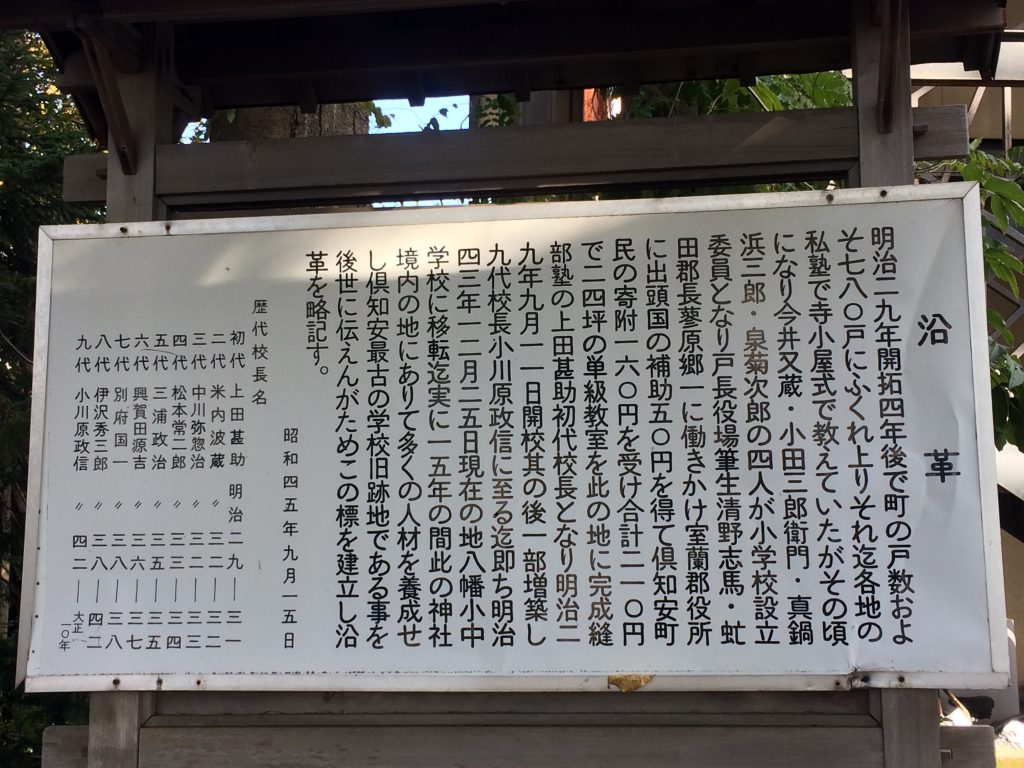 沿革
明治二九年開拓四年後で町の戸数およ
そ七八〇戸にふくれ上りそれ迄各地の
私塾で寺小屋式で教えていたがその頃
になり今井又蔵・小田三郎衛門・真鍋
浜三郎・泉菊次郎の四人が小学校設立
委員となり戸長役場筆生清野志馬・虻
田郡長蓼原郷一に働きかけ室蘭郡役所
に出頭国の補助五〇円を得て倶知安町
民の寄附一六〇円を受け合計二一〇円
で二四坪の単級教室を此の地に完成縫
部塾の上田甚助初代校長となり明治二
九年九月一一日開校其の後一部増築し
九代校長小川原政信に至る迄即ち明治
四三年一二月二五日現在の地八幡小中
学校に移転迄実に一五年の間此の神社
境内の地にありて多くの人材を養成せ
し倶知安最古の学校旧跡地である事を
後世に伝えんがためこの標を建立し沿
革を略記す。
昭和四五年九月一五日
歴代校長名
初代 上田甚助 明治二九―三一
二代 米内波蔵 〃 三一―三二
三代 中川弥惣治 〃 三二―三三
四代 松本常二郎 〃 三三―三四
五代 三浦政治 〃 三五―三五
六代 興賀田源吉 〃 三六―三七
七代 別府国一 〃 三八―三八
八代 伊沢秀三郎 〃 三八―四二
九代 小川原政信 〃 四二―大正一〇年